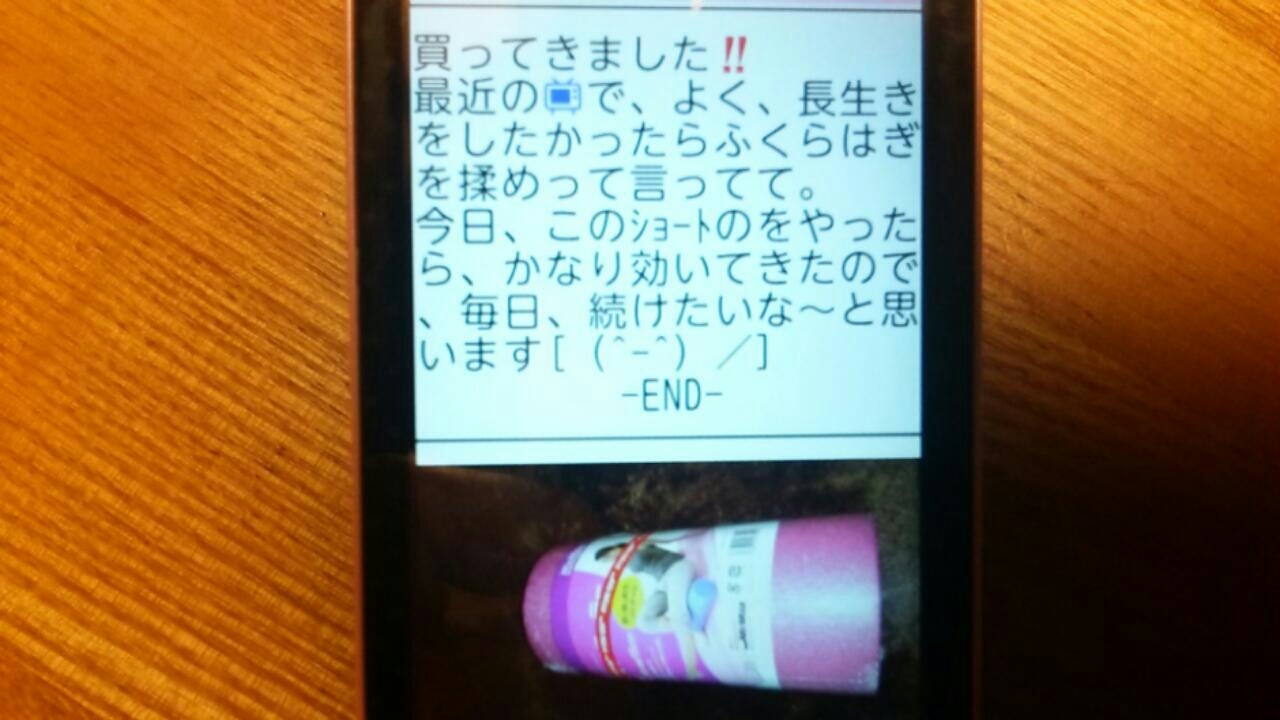 買ってきました‼
最近の📺で、よく、長生き
をしたかったらふくらはぎ
を揉めって言ってて。
今日、このｼｮｰﾄのをやった
ら、かなり効いてきたので
、毎日、続けたいな～と思
います[ (^-^) ／]
-END-